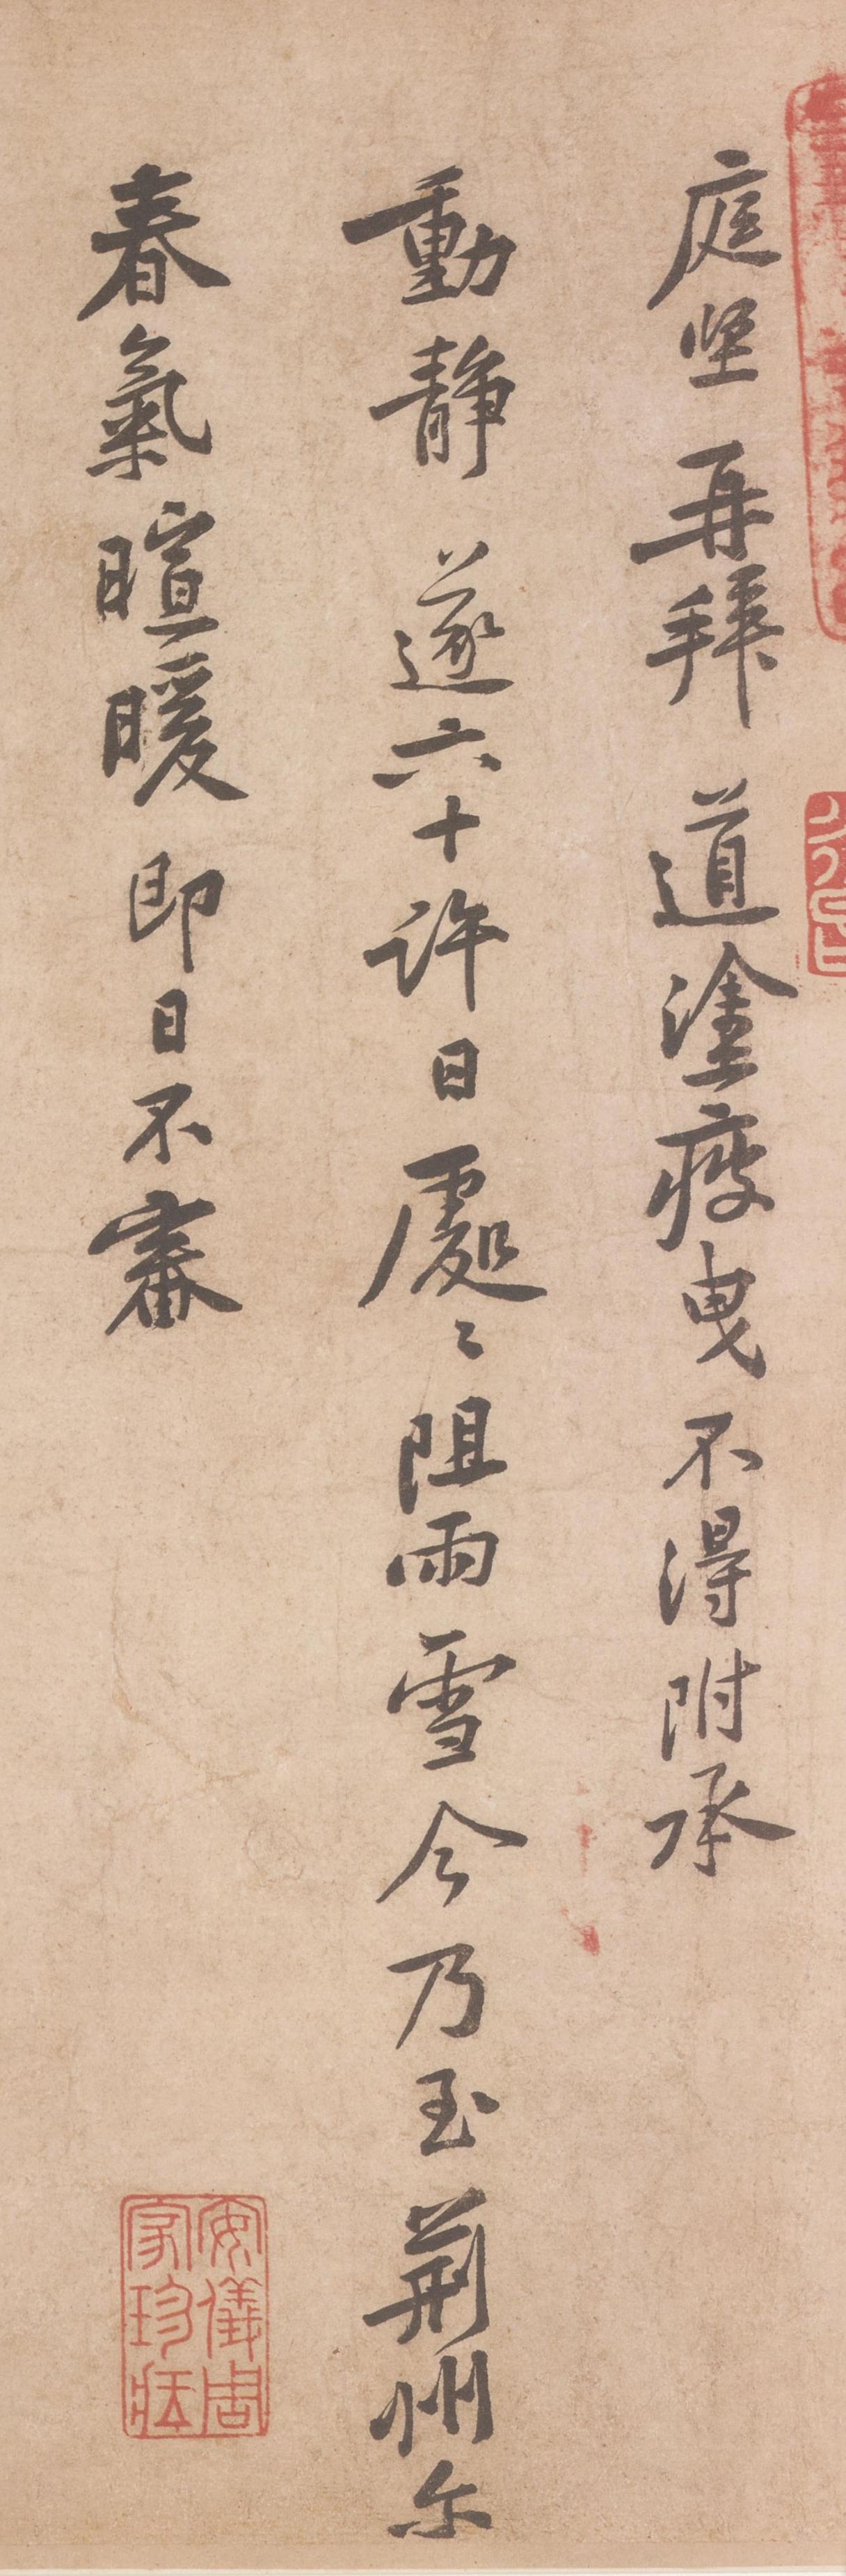 庭坚再拜道塗疲曳不得附承
動静遂六十許日處〻阻雨雪今乃至荆州尔
春氣暄暖即日不審
安儀周家珍藏